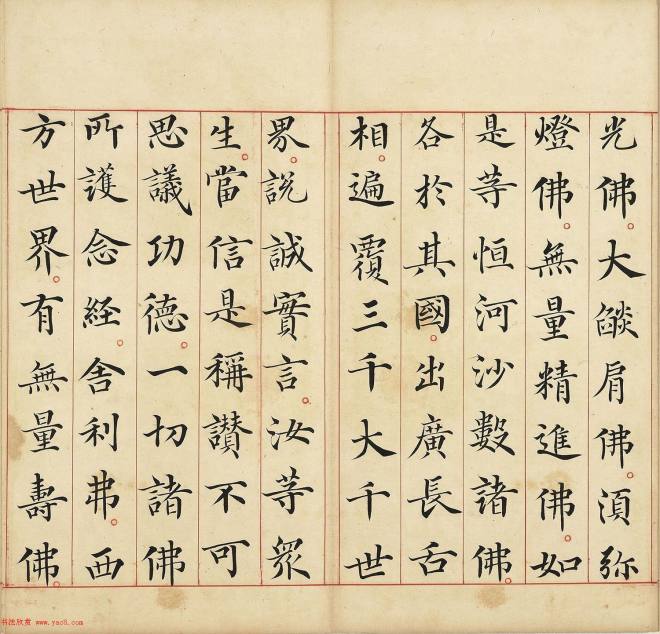 光佛。大燄肩佛。湏弥
燈佛。無量精進佛。如
是等恒河沙數諸佛。
各於其國。出廣長舌
相。遍覆三千大千世
界。説誠實言。汝等眾
生。當信是稱讃不可
思議功德。一切諸佛
所護念経。舎利弗。西
方世界。有無量壽佛。
书法欣赏 www.yac8.com